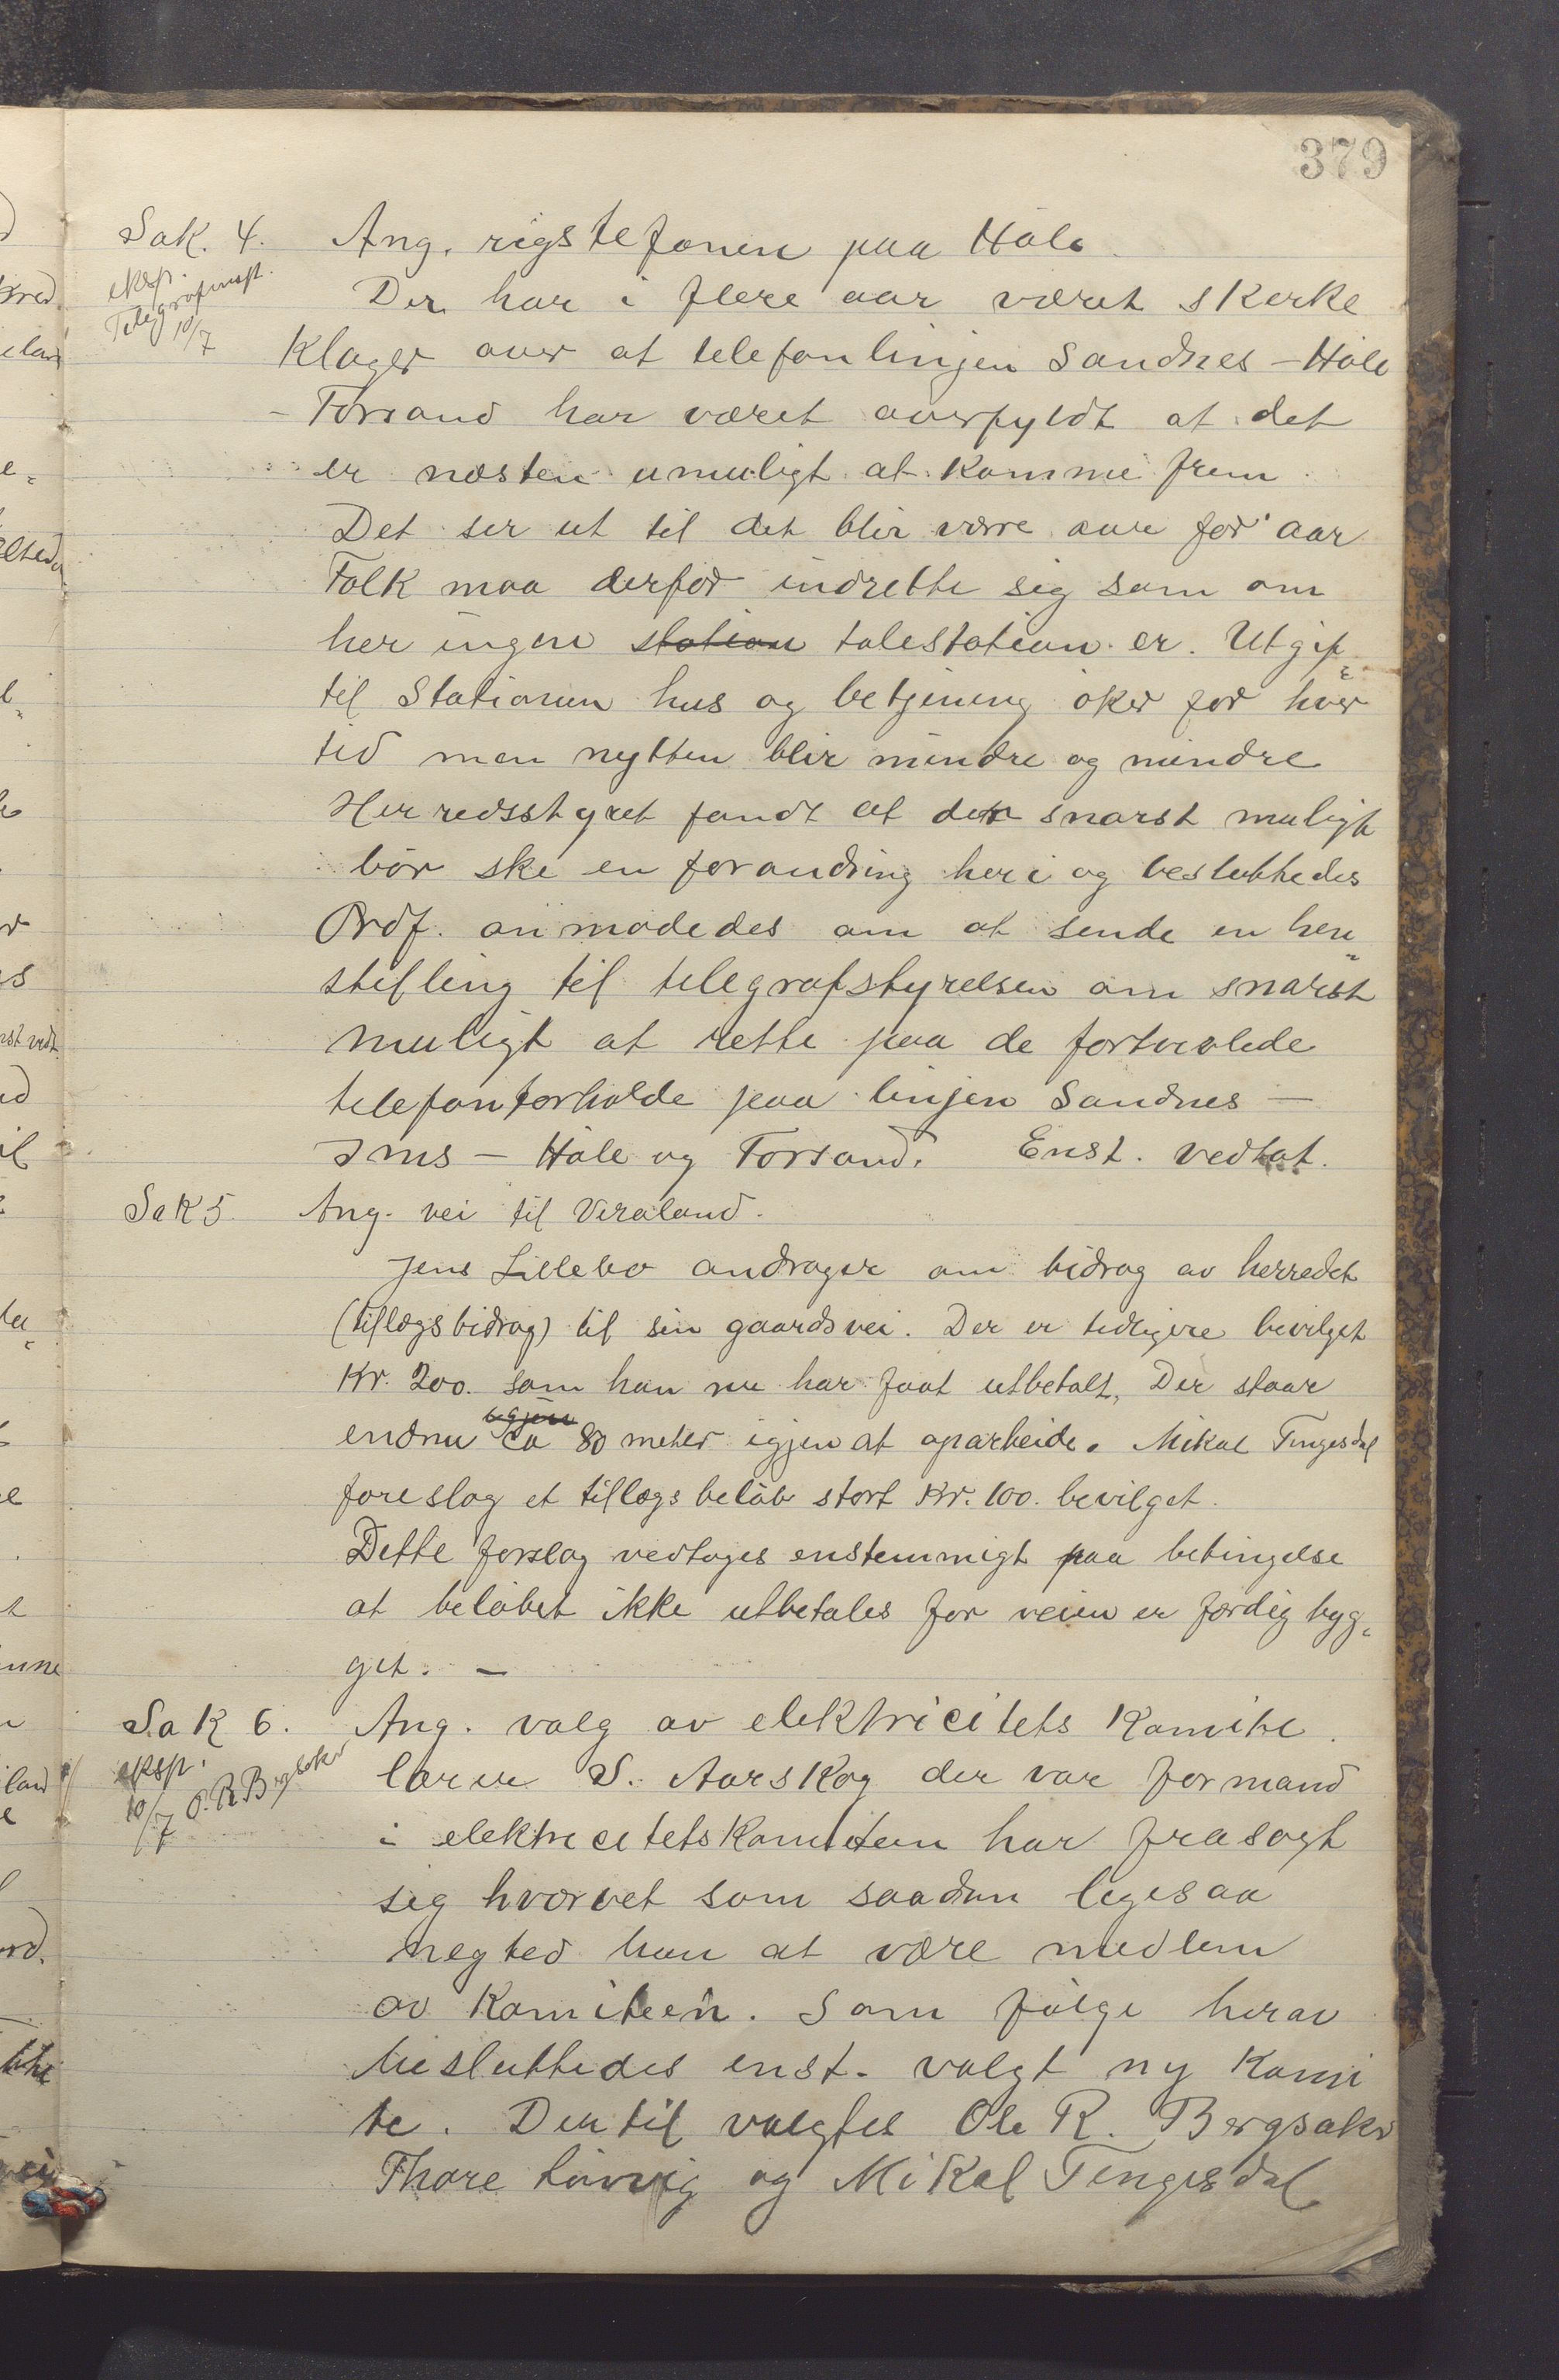 379
Sak. 4. Ang. rigstefonen paa Høle
eksp.
10/7
Der har i flere aar været sterke
Klager over at telefonlinjen Sandnes - Høle
- Forsand har været overfyldt at det
er næsten umuligt at komme frem.
Det ser ut til det blir værre aar for aar
Folk maa derfor indrette sig som om
her ingen station talestation er. Utgif=
til Stationen hus og betjening øker for hver
tid men nytten blir mindre og mindre
Herredsstyret fandt at der snarst muligt
bør ske en forandring heri og besluttedes
Ordf. anmodedes om at sende en hen=
stilling til telegrafstyrelsen om snarst
muligt at rette paa de fortvilede
telefonforholde paa linjen Sandnes -
Ims - Høle og Forsand. Enst. vedtat.
Sak 5. Ang. vei til Veraland.
Jens Lillebø andrager om bidrag av herredet
(tillægsbidrag) til sin gaardsvei. Der er tidligere bevilget
Kr. 200. som han nu har faat utbetalt, Der staar
igjen
endnu ca 80 meter igjen at oparbeide. Mikal Tengesdal
foreslog et tillægsbeløb stort Kr. 100. bevilget.
Dette forslag vedtoges enstemmigt paa betingelse
at beløbet ikke utbetales før veien er færdig byg=
get. -
Sak 6. Ang. valg av elektricitets Komite.
eksp.
10/7 O. R. Bergsaker
Lærer S. Aarskog der var formand
i elektricitetskomiteen har frasagt
sig hvervet som saadan ligesaa
negted han at være medlem
av Komiteen. Som følge herav
besluttedes enst. valgt ny Komi
te. Dertil valgtes Ole R. Bergsaker
Thore Løvvig og Mikal Tengesdal